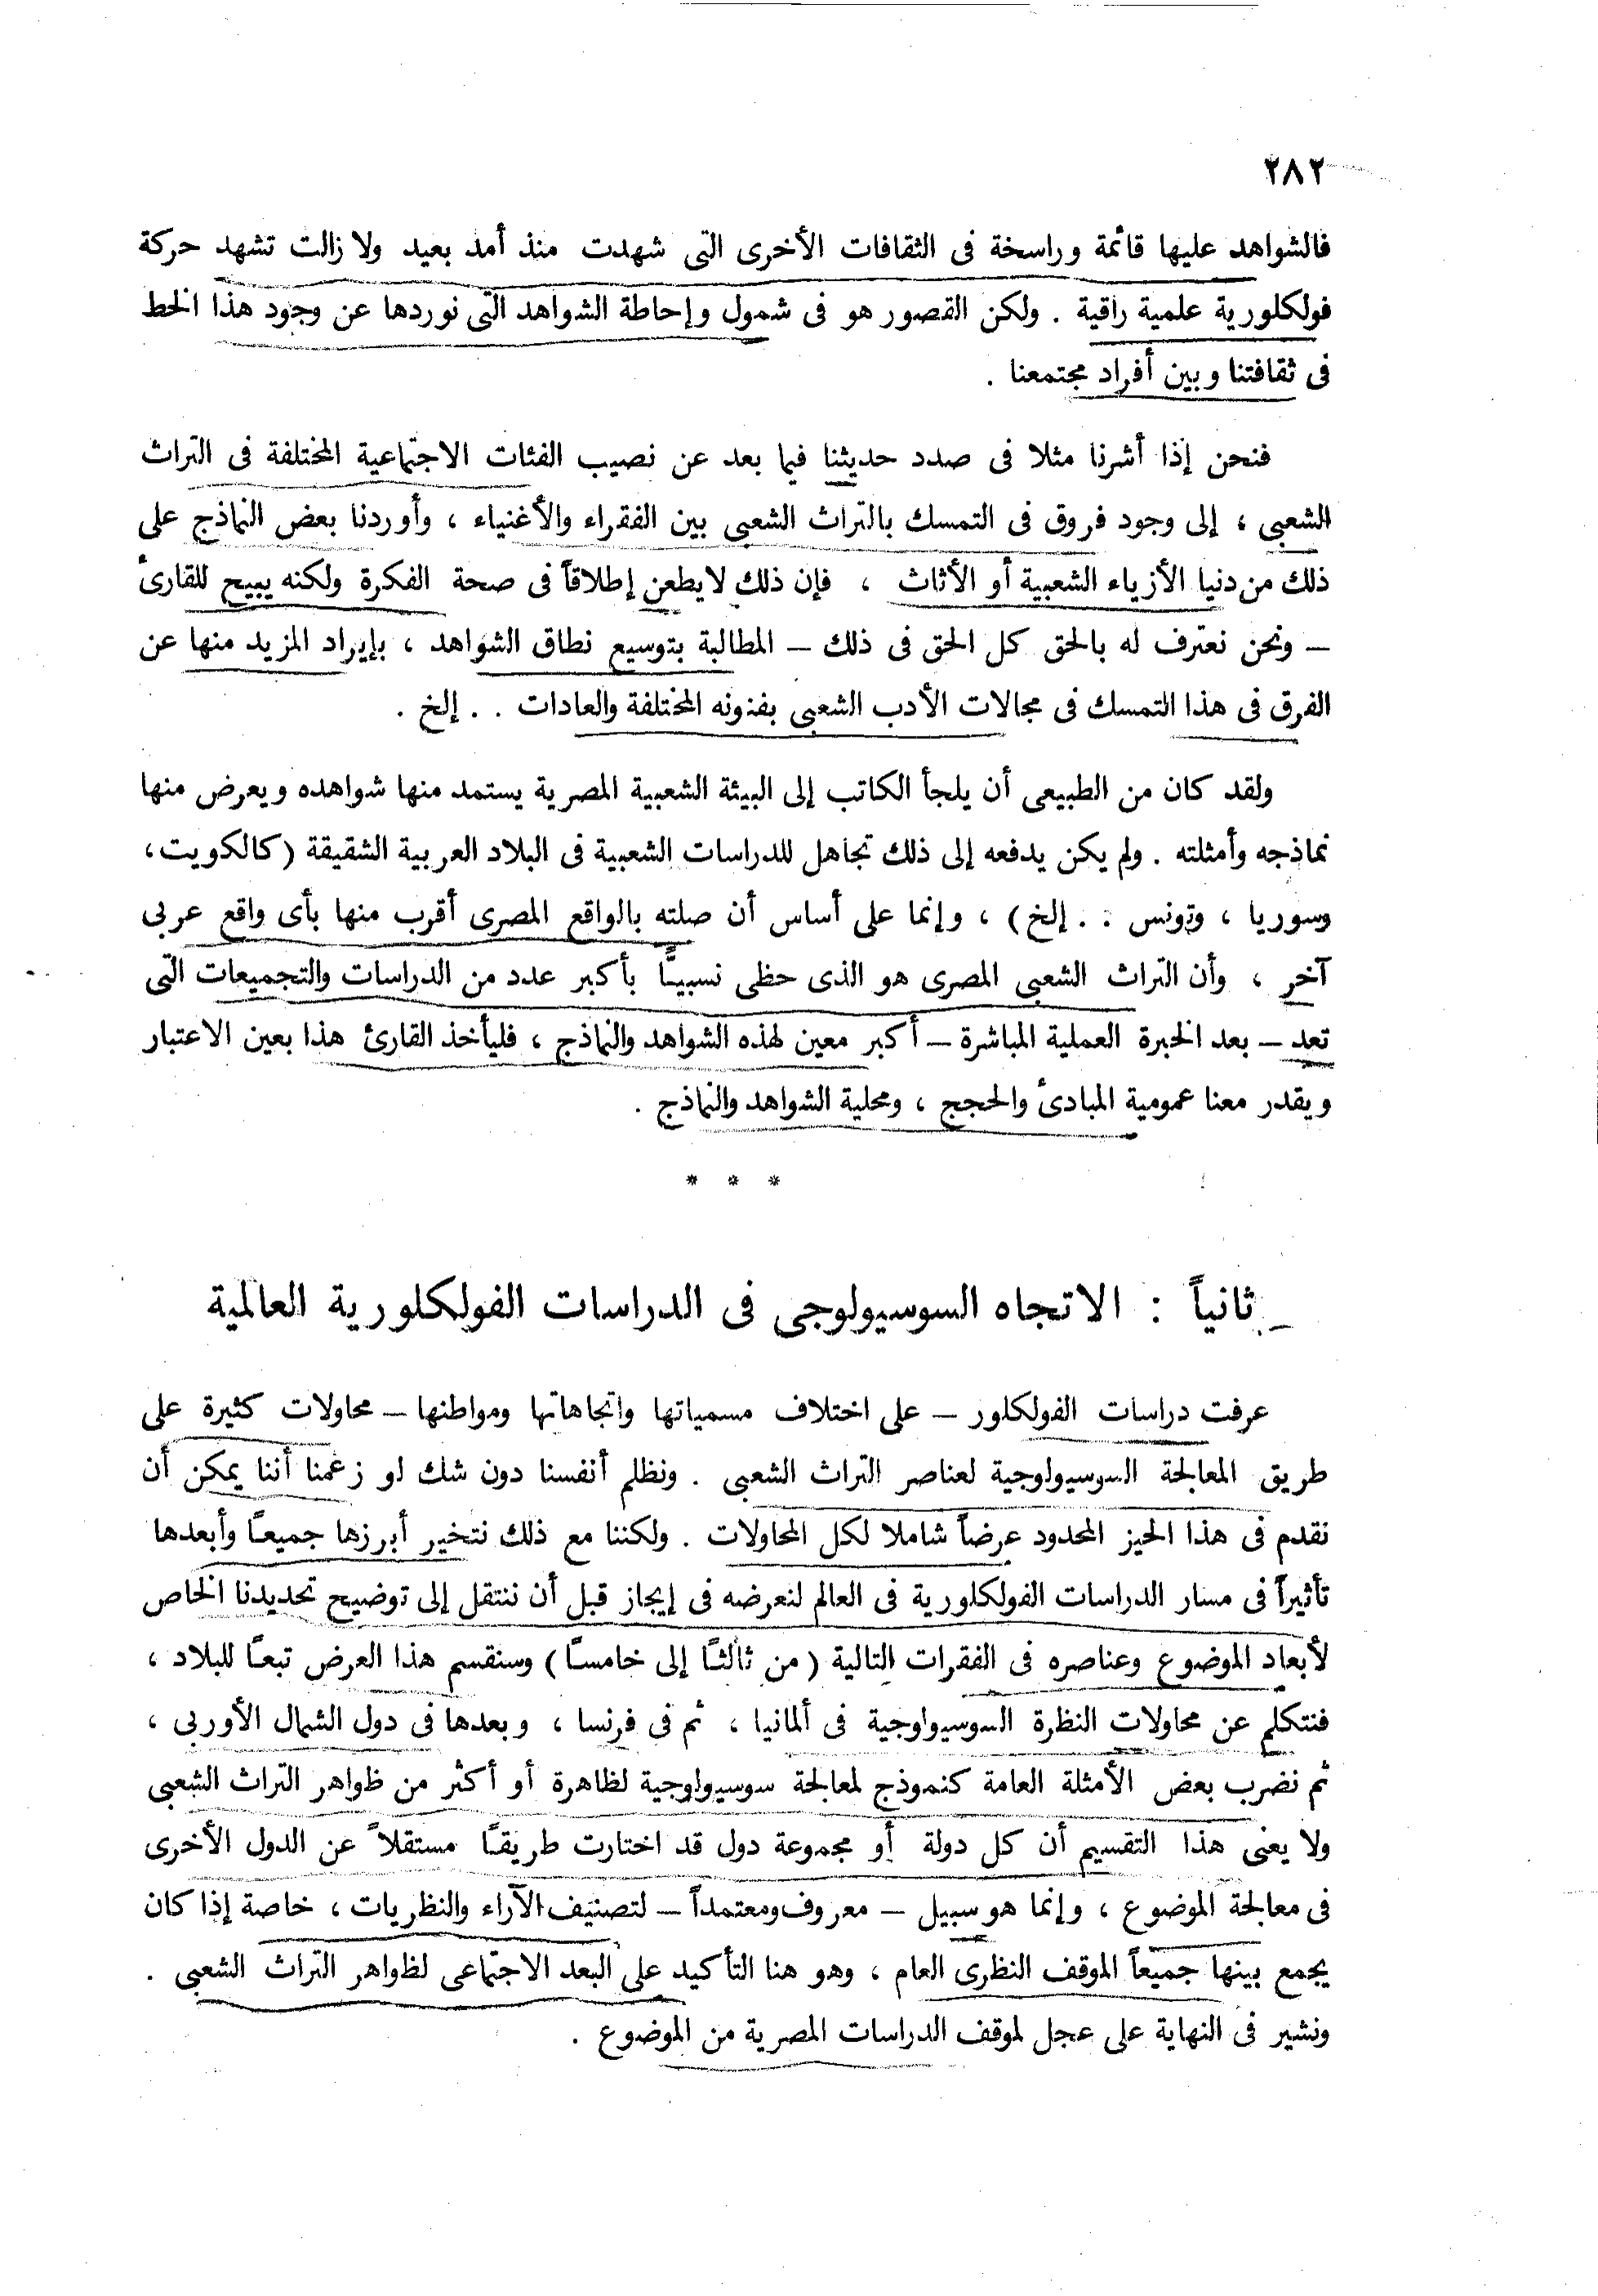 ٢٨٢
فالشواهد عليها قائمة وراسخة فى الثقافات الأخرى التى شهدت منذ أمد بعيد ولا زالت تشهد حركة
فولكلورية علمية راقية . ولكن القصور هو فى شمول وإحاطة الشواهد التى نوردها عن وجود هذا الخط
فى ثقافتنا وبين أفراد مجتمعنا .
فنحن إذا أشرنا مثلا فى صدد حديثنا فيما بعد عن نصيب الفئات الاجتماعية المختلفة فى التراث
الشعبى ، إلى وجود فروق فى التمسك بالتراث الشعبى بين الفقراء والأغنياء ، وأوردنا بعض النماذج على
ذلك من دنيا الأزياء الشعبية أو الأثاث ، فإن ذلك لا يطعن إطلاقاً فى صحة الفكرة ولكنه يبيح للقارئ
– ونحن نعترف له بالحق كل الحق فى ذلك – المطالبة بتوسيع نطاق الشواهد ، بإيراد المزيد منها عن
الفرق فى هذا التمسك فى مجالات الأدب الشعبى بفنونه المختلفة والعادات . . إلخ .
ولقد كان من الطبيعى أن يلجأ الكاتب إلى البيئة الشعبية المصرية يستمد منها شواهده ويعرض منها
نماذجه وأمثلته . ولم يكن يدفعه إلى ذلك تجاهل للدراسات الشعبية فى البلاد العربية الشقيقة (كالكويت،
وسوريا ، وتونس . . إلخ) ، وإنما على أساس أن صلته بالواقع المصرى أقرب منها بأى واقع عربى
آخر ، وأن التراث الشعبى المصرى هو الذى حظى نسبيًّا بأكبر عدد من الدراسات والتجميعات التى
تعد – بعد الخبرة العملية المباشرة – أكبر معين لهذه الشواهد والنماذج ، فليأخذ القارئ هذا بعين الاعتبار
ويقدر معنا عمومية المبادئ والحجج ، ومحلية الشواهد والنماذج .
* * *
ثانياً : الاتجاه السوسيولوجى فى الدراسات الفولكلورية العالمية
عرفت دراسات الفولكلور – على اختلاف مسمياتها واتجاهاتها ومواطنها – محاولات كثيرة على
طريق المعالجة السوسيولوجية لعناصر التراث الشعبى . ونظلم أنفسنا دون شك لو زعمنا أننا يمكن أن
نقدم فى هذا الحيز المحدود عرضاً شاملا لكل المحاولات . ولكننا مع ذلك نتخير أبرزها جميعًا وأبعدها
تأثيراً فى مسار الدراسات الفولكلورية فى العالم لنعرضه فى إيجاز قبل أن ننتقل إلى توضيح تحديدنا الخاص
لأبعاد الموضوع وعناصره فى الفقرات التالية (من ثالثًا إلى خامسًا) وسنقسم هذا العرض تبعًا للبلاد ،
فنتكلم عن محاولات النظرة السوسيولوجية فى ألمانيا ، ثم فى فرنسا ، وبعدها فى دول الشمال الأوربى ،
ثم نضرب بعض الأمثلة العامة كنموذج لمعالجة سوسيولوجية لظاهرة أو أكثر من ظواهر التراث الشعبى
ولا يعنى هذا التقسيم أن كل دولة أو مجموعة دول قد اختارت طريقًا مستقلاً عن الدول الأخرى
فى معالجة الموضوع ، وإنما هو سبيل – معروف ومعتمداً – لتصنيف الآراء والنظريات ، خاصة إذا كان
يجمع بينها جميعاً الموقف النظرى العام ، وهو هنا التأكيد على البعد الاجتماعى لظواهر التراث الشعبى .
ونشير فى النهاية على عجل لموقف الدراسات المصرية من الموضوع .